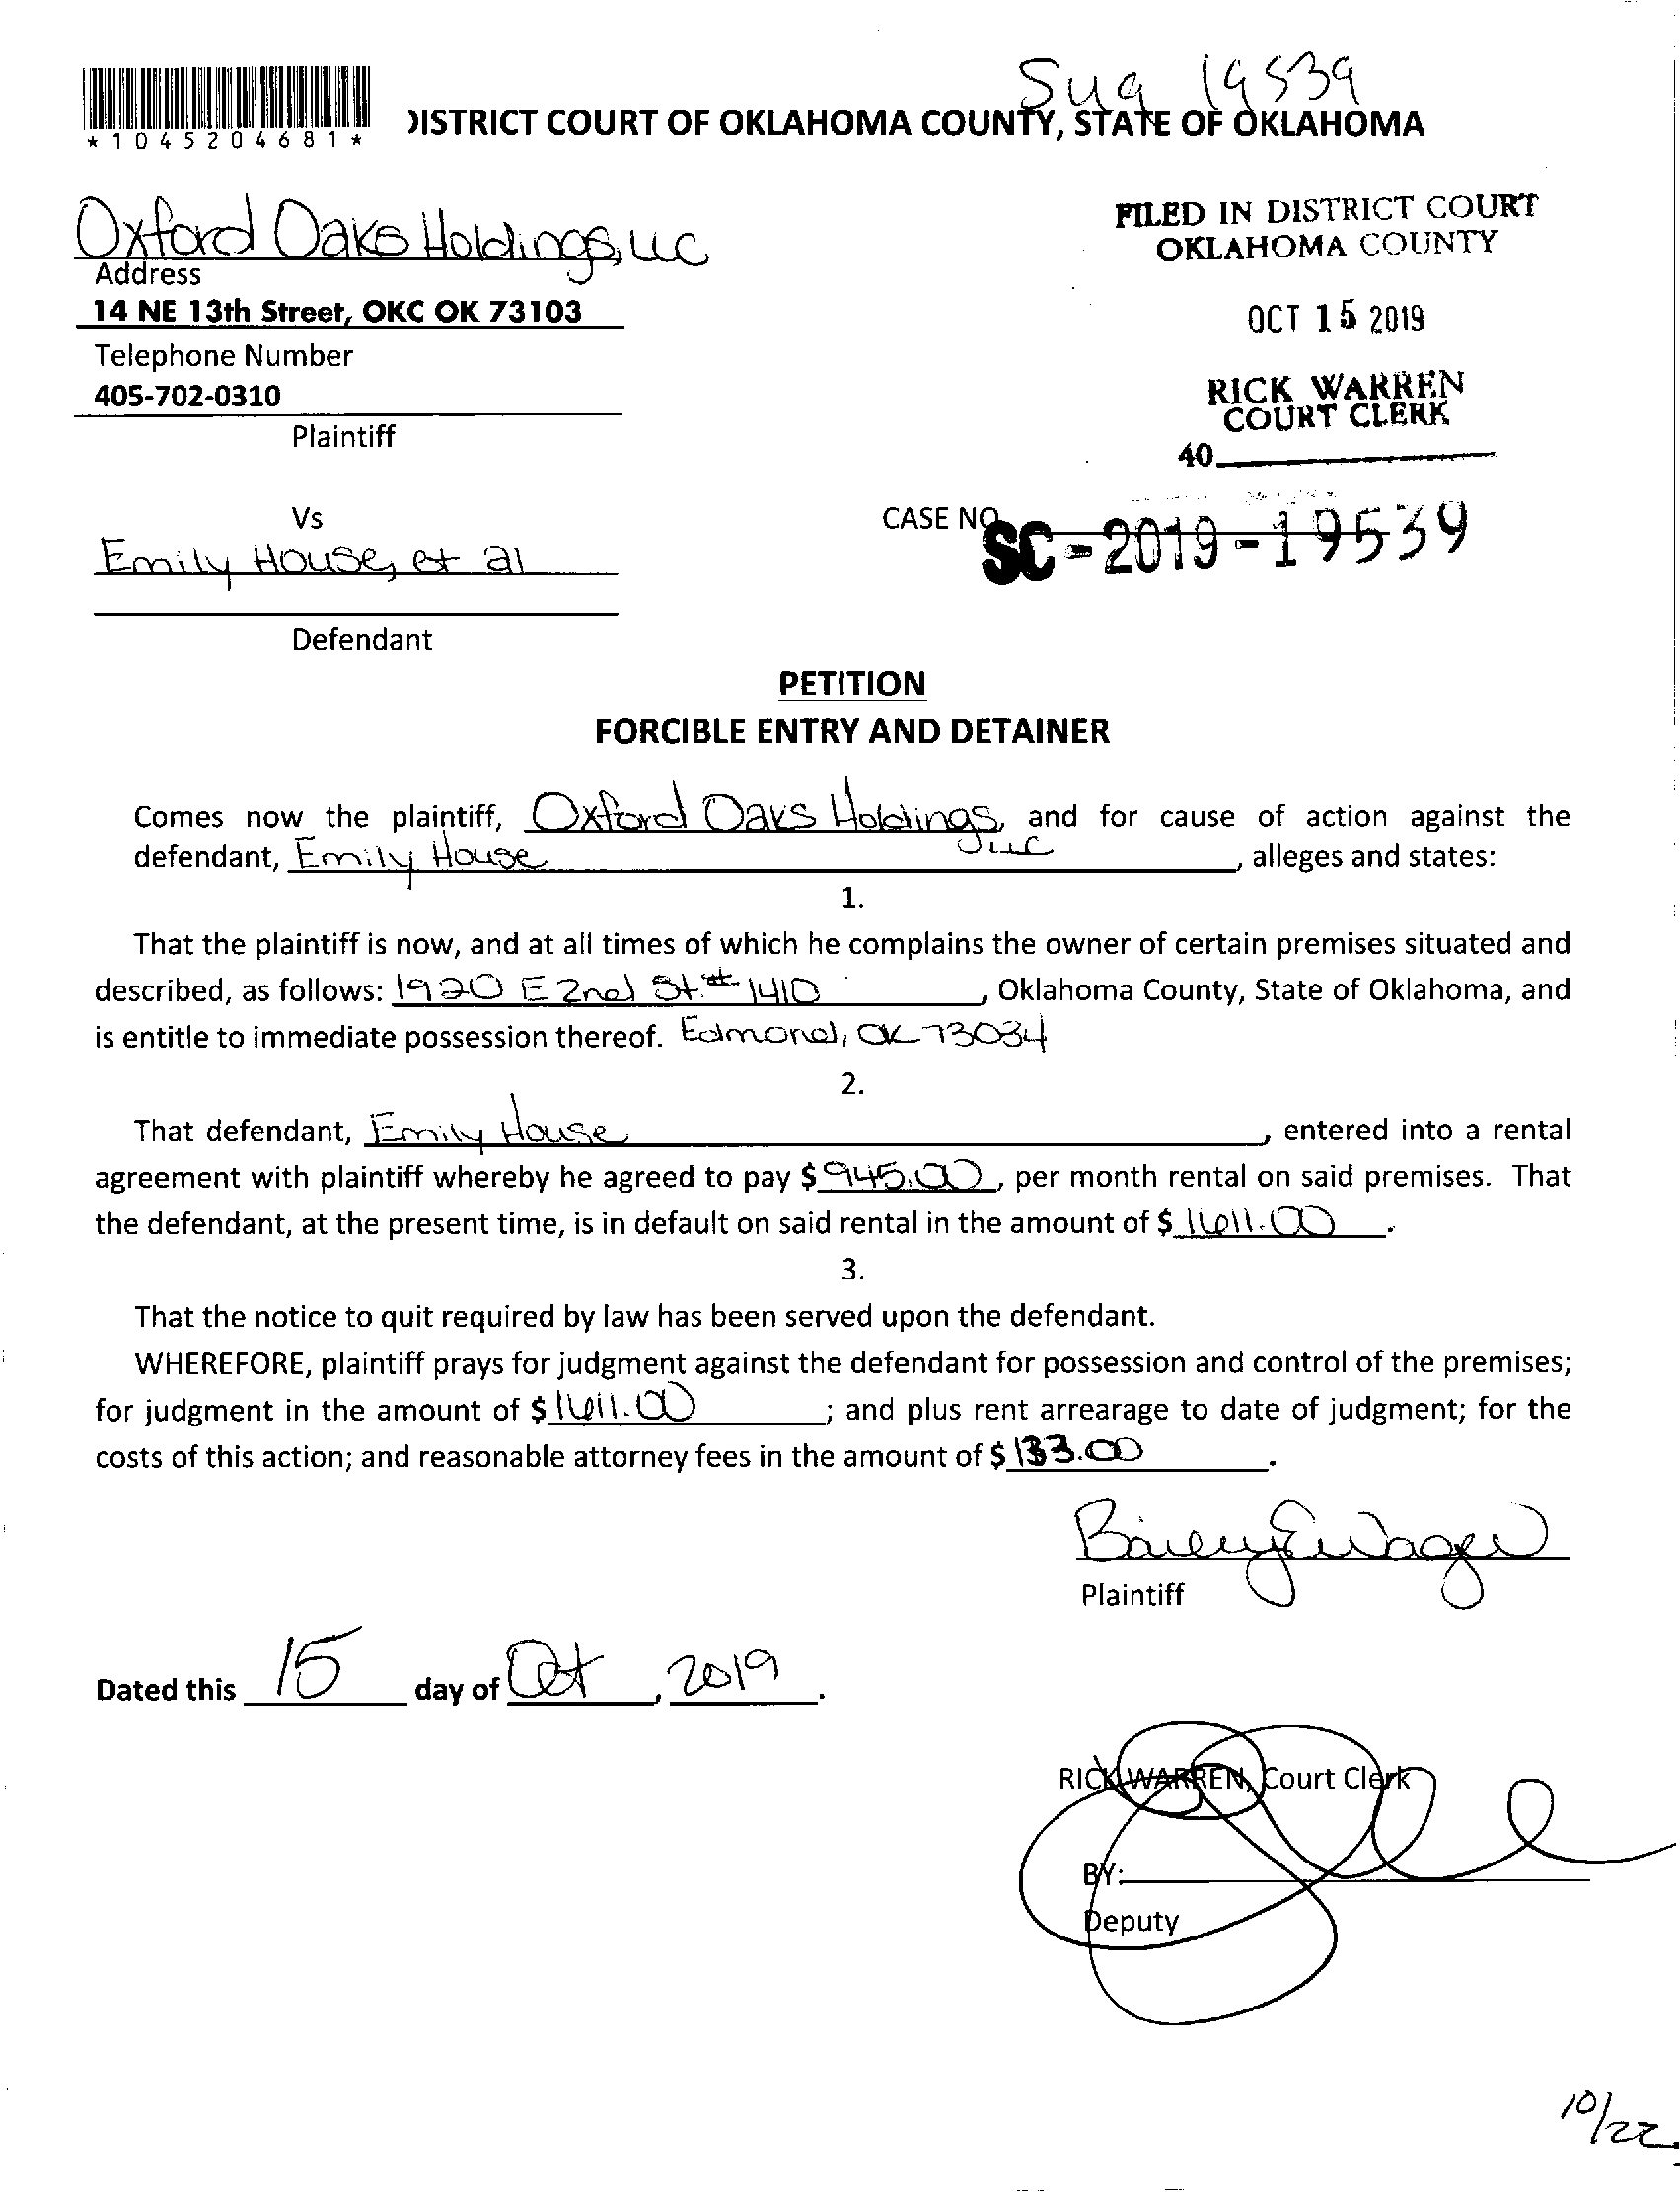 Sug 19539
*1045204681*
DISTRICT COURT OF OKLAHOMA COUNTY, STATE OF OKLAHOMA
Oxford Oaks Holdings, LLC
Address
14 NE 13th Street, OKC OK 73103
Telephone Number
405-702-0310
Plaintiff
FILED IN DISTRICT COURT
OKLAHOMA COUNTY
OCT 15 2019
RICK WARREN
COURT CLERK
40
Vs
Emily House, et al
Defendant
CASE NO. SC-2019-19539
PETITION
FORCIBLE ENTRY AND DETAINER
Comes now the plaintiff, Oxford Oaks Holdings, LLC and for cause of action against the
defendant, Emily House, alleges and states:
1.
That the plaintiff is now, and at all times of which he complains the owner of certain premises situated and
described, as follows: 1920 E 2nd St. #1410, Oklahoma County, State of Oklahoma, and
is entitle to immediate possession thereof. Edmond, OK 73034
2.
That defendant, Emily House, entered into a rental
agreement with plaintiff whereby he agreed to pay $945.00, per month rental on said premises. That
the defendant, at the present time, is in default on said rental in the amount of $1611.00.
3.
That the notice to quit required by law has been served upon the defendant.
WHEREFORE, plaintiff prays for judgment against the defendant for possession and control of the premises;
for judgment in the amount of $1611.00; and plus rent arrearage to date of judgment; for the
costs of this action; and reasonable attorney fees in the amount of $133.00.
Plaintiff
Dated this 15 day of Oct, 2019.
RICK WARREN, Court Clerk
BY:
Deputy
10/22